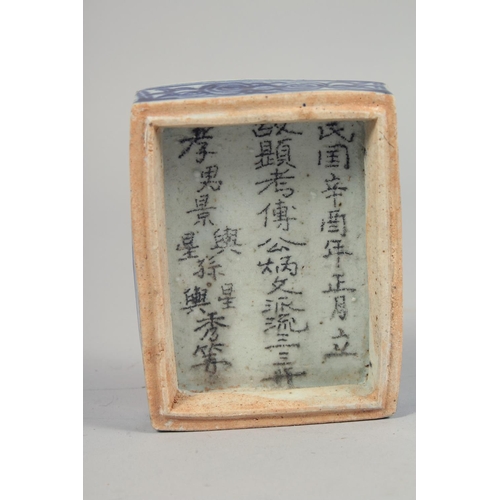 民国辛酉年正月立
故顯考傅公炳文派流三三世
孝男景星 孫興興星秀等